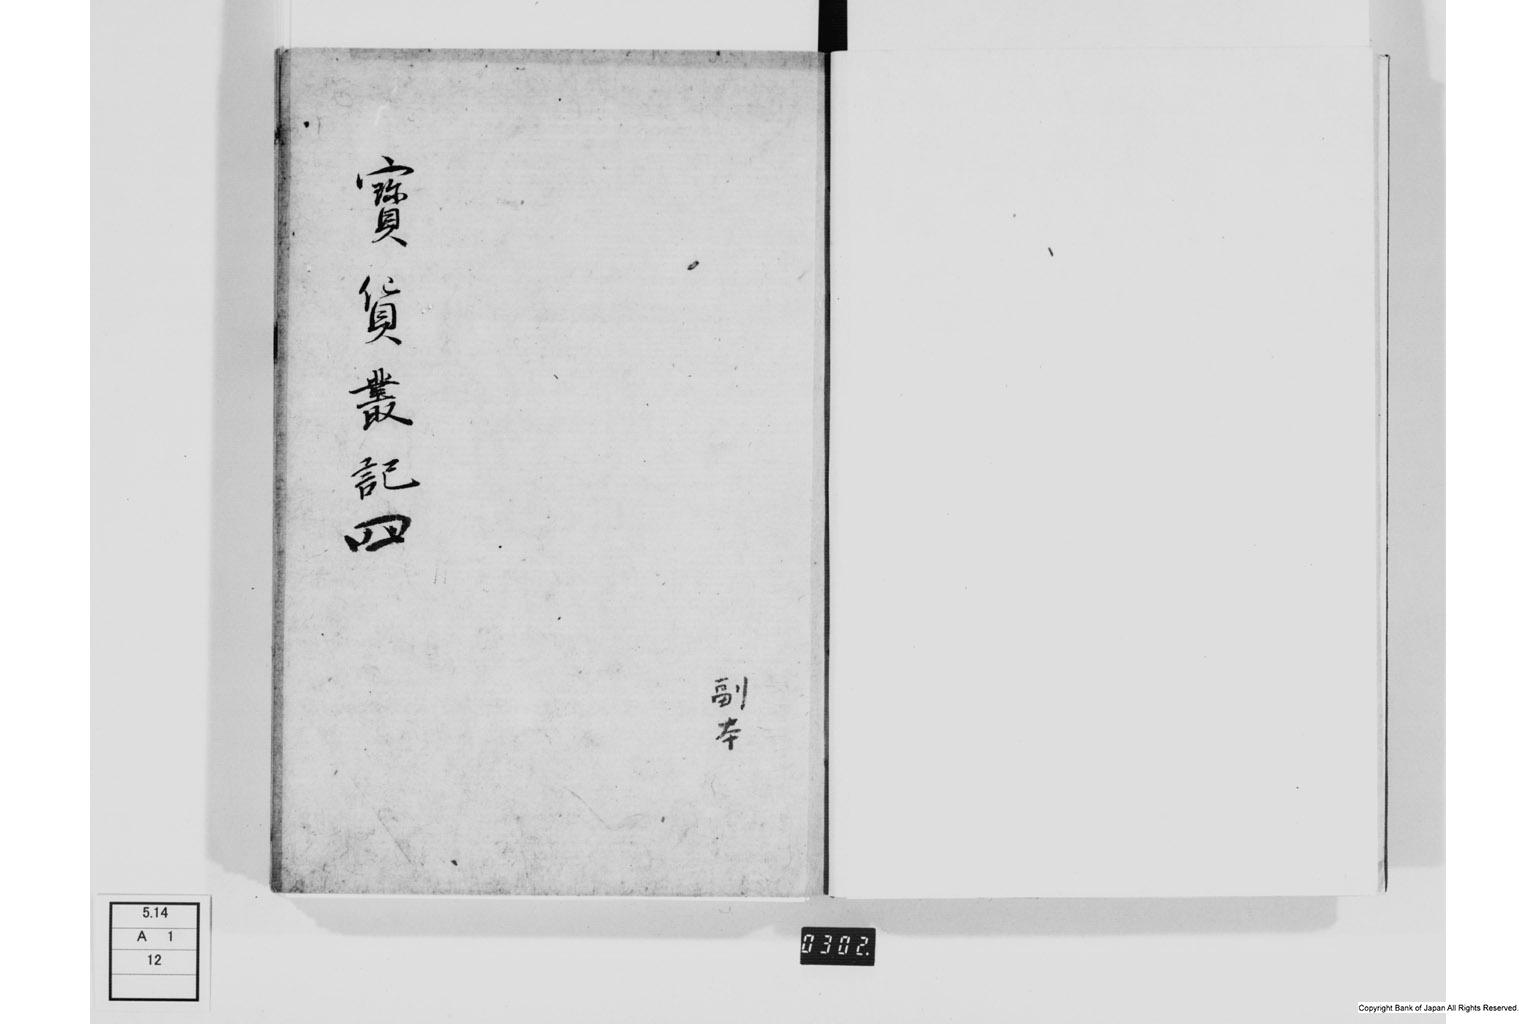 寳貨叢記四
副本
5.14
A 1
12
0302.
Copyright Bank of Japan All Rights Reserved.